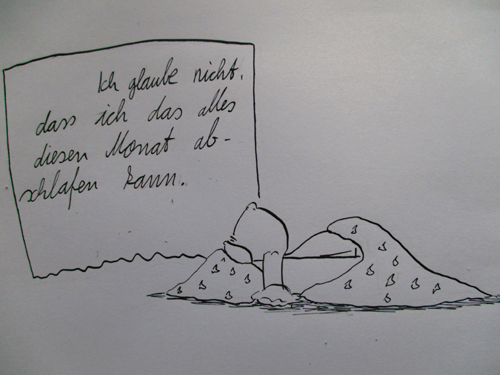 Ich glaube nicht,
dass ich das alles
diesen Monat ab-
schlafen kann.